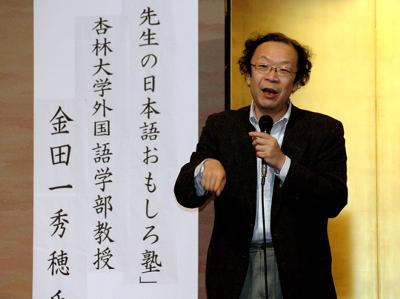 先生の日本語おもしろ塾」
杏林大学外国語学部教授
金田一秀穂